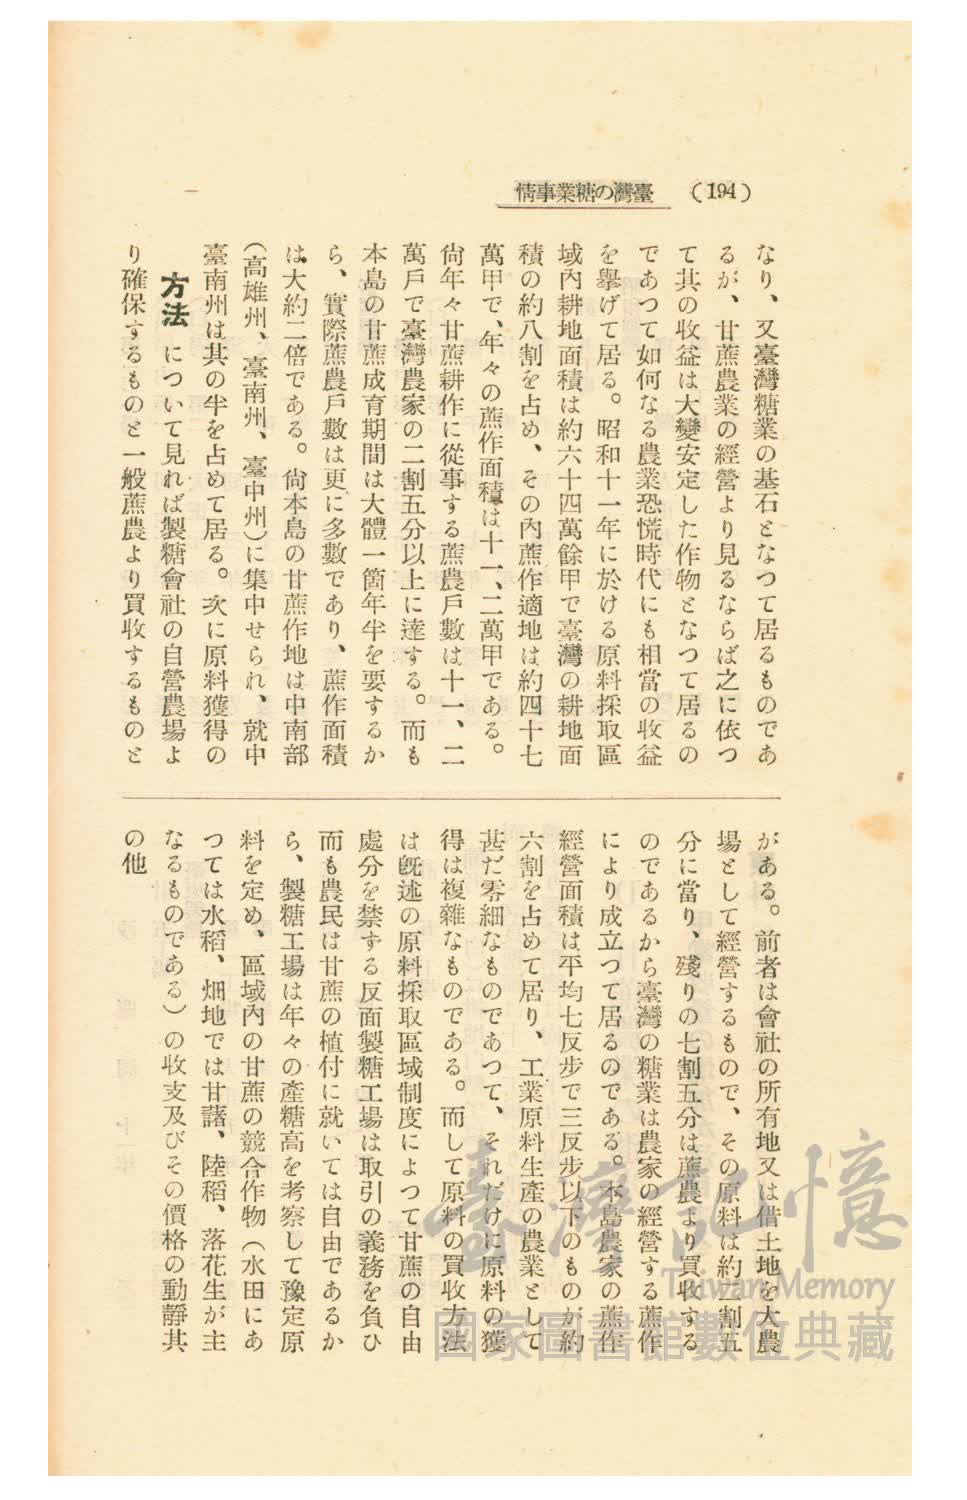 (194) 臺灣の糖業事情
なり、又臺灣糖業の基石となつて居るものであ
るが、甘蔗農業の經營より見るならば之に依つ
て其の收益は大變安定した作物となつて居るの
であつて如何なる農業恐慌時代にも相當の收益
を擧げて居る。昭和十一年に於ける原料採取區
域內耕地面積は約六十四萬餘甲で臺灣の耕地面
積の約八割を占め、その內蔗作適地は約四十七
萬甲で、年々の蔗作面積は十一、二萬甲である。
尙年々甘蔗耕作に從事する蔗農戶數は十一、二
萬戶で臺灣農家の二割五分以上に達する。而も
本島の甘蔗成育期間は大體一箇年半を要するか
ら、實際蔗農戶數は更に多數であり、蔗作面積
は大約二倍である。尙本島の甘蔗作地は中南部
(高雄州、臺南州、臺中州)に集中せられ、就中
臺南州は其の半を占めて居る。次に原料獲得の
方法 について見れば製糖會社の自營農場よ
り確保するものと一般蔗農より買收するものと
がある。前者は會社の所有地又は借土地を大農
場として經營するもので、その原料は約二割五
分に當り、殘りの七割五分は蔗農より買收する
のであるから臺灣の糖業は農家の經營する蔗作
により成立つて居るのである。本島農家の蔗作
經營面積は平均七反步で三反步以下のものが約
六割を占めて居り、工業原料生產の農業として
甚だ零細なものであつて、それだけに原料の獲
得は複雜なものである。而して原料の買收方法
は既述の原料採取區域制度によつて甘蔗の自由
處分を禁ずる反面製糖工場は取引の義務を負ひ
而も農民は甘蔗の植付に就いては自由であるか
ら、製糖工場は年々の產糖高を考察して豫定原
料を定め、區域內の甘蔗の競合作物(水田にあ
つては水稻、畑地では甘藷、陸稻、落花生が主
なるものである)の收支及びその價格の動靜其
の他
臺灣記憶
Taiwan Memory
國家圖書館數位典藏